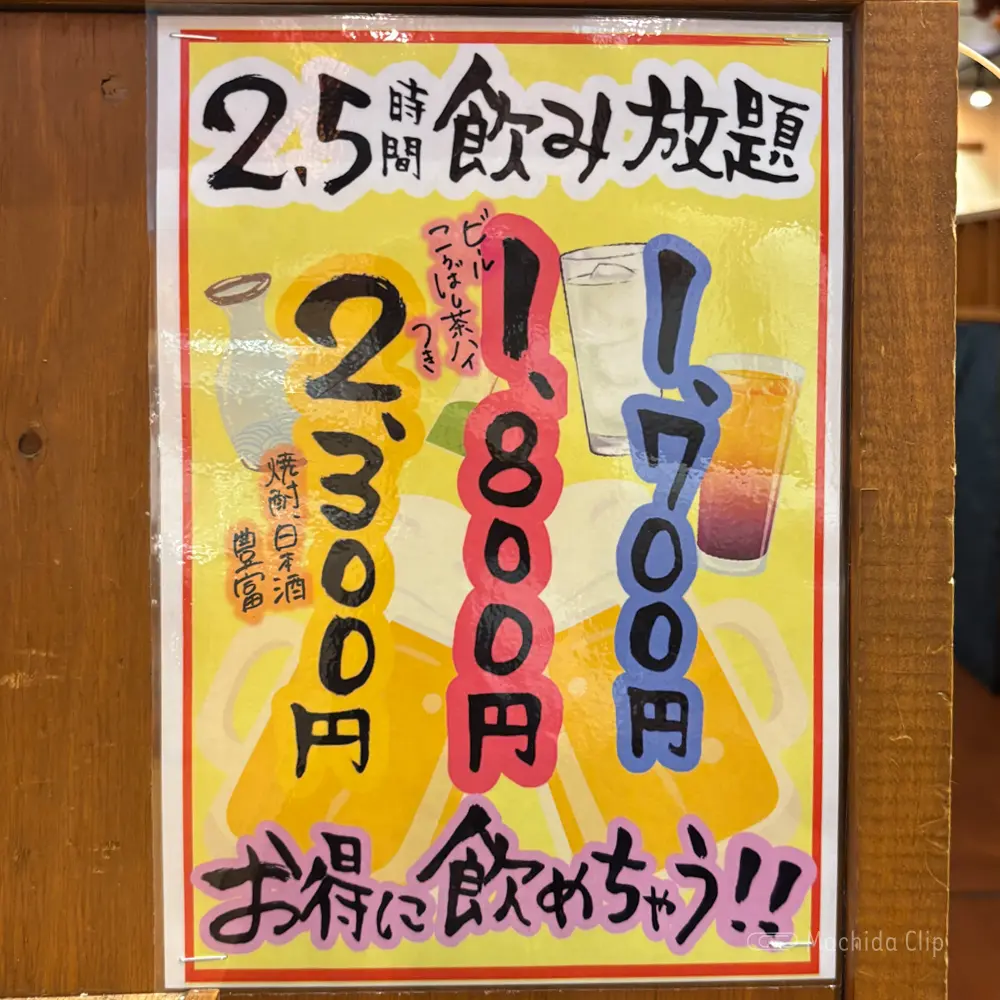 2.5時間飲み放題
1,700円
1,800円
ビール
こうばし茶ハイ
つき
2,300円
焼酎、日本酒
豊富
お得に飲めちゃう!!
Machida Clip